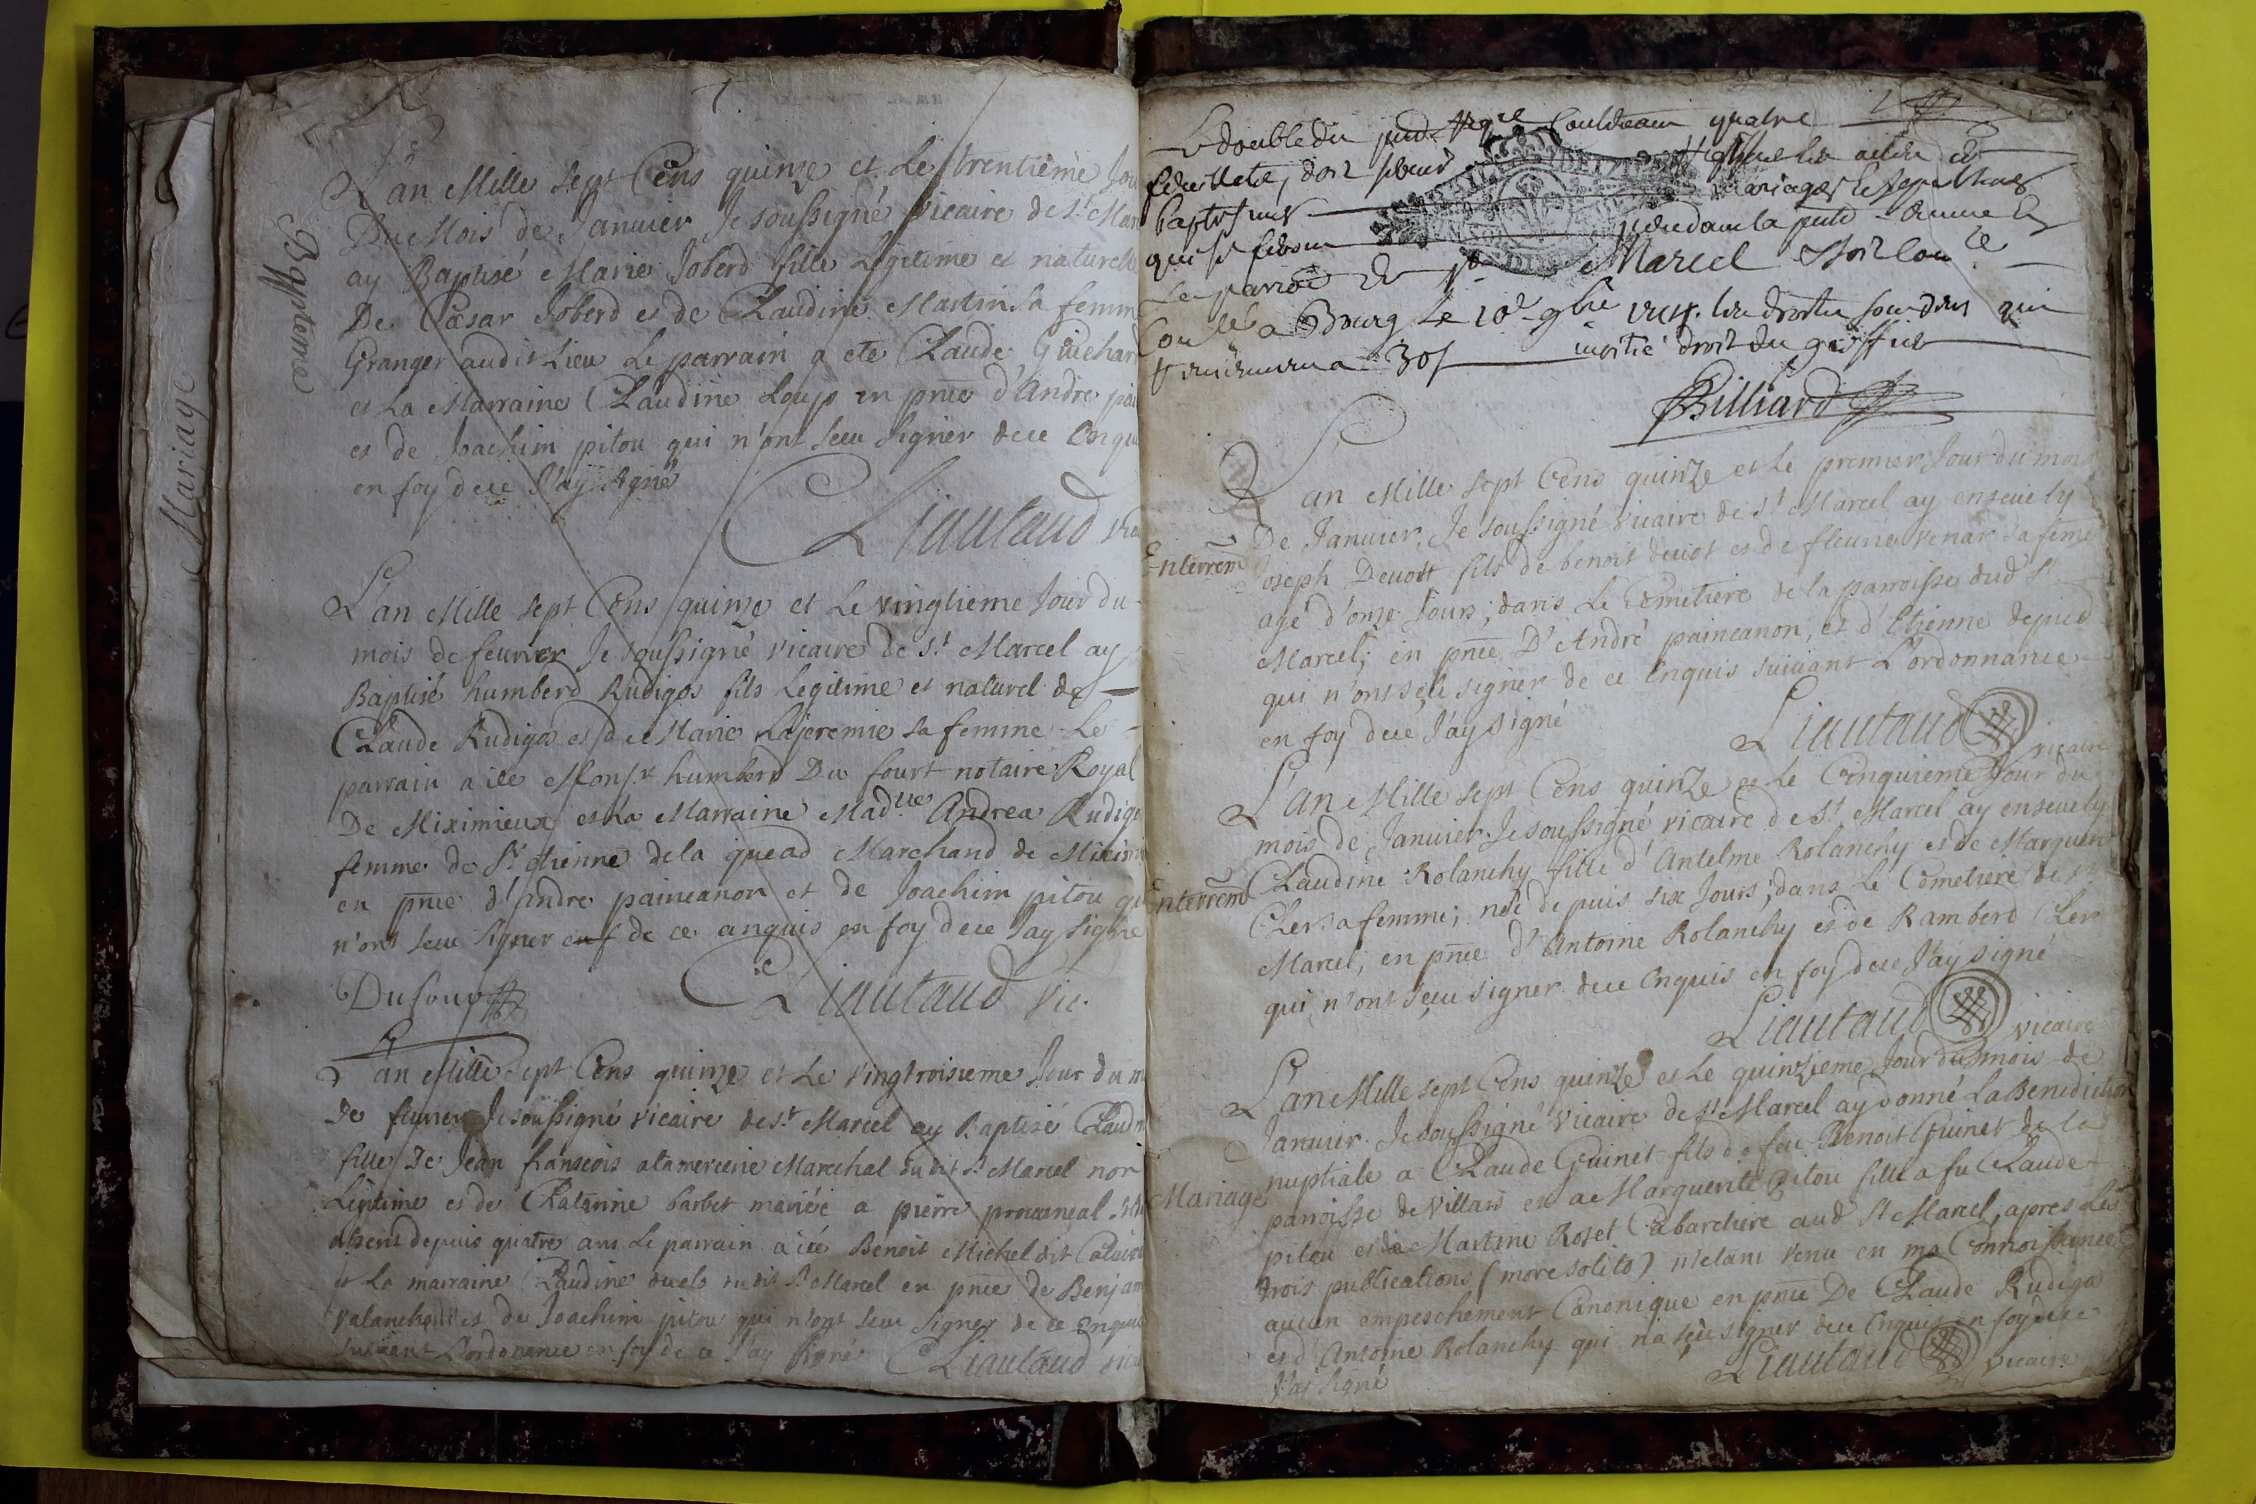 Mariage
Bapteme
L'an Mille sept Cens quinze et Le trentieme Jou
Du Mois de Januier Je soussigné vicaire de St Mar
ay Baptisé Marie Joberd fille Legitime et naturelle
De Cæsar Joberd et de Claudine Martin sa femm
Granger audit Lieu Le parrain a ete Claude Guichar
et La Marraine Claudine Loup en pnce d'Andre pai
et de Joachim pitou qui n'ont sceu signer de ce Enqui
en foy de ce J'ay signé
Liautaud vic
L'an Mille sept Cens quinze et Le vingtieme Jour du
mois de feurier Je soussigné vicaire de St Marcel ay
Baptisé humberd Rudigos fils Legitime et naturel de
Claude Rudigos et de Marie Lajeremie sa femme Le
parrain a ete Monsr humberd Du fourt notaire Royal
De Miximieux et La Marraine Madlle Andrea Rudigo
femme de Sr etienne dela quead Marchand de Mixim
en pnce d'Andre paincanon et de Joachim pitou qu
n'ont sceu signer de ce anquis en foy de ce J'ay signé
Dufour
Liautaud vic.
L'an Mille sept Cens quinze et Le vingtroisieme Jour du m
de feurier Je soussigné vicaire de St Marcel ay Baptizé Claudi
fille De Jean franscois alamercerie Marechal dudit St Marcel non
Legitime et de Catherine barbet mariéé a pierre
absent depuis quatre ans Le parrain a été Benoit Michel dit
et La marraine Claudine dudit St Marcel en pnce de Benjam
et de Joachim pitou qui n'ont sceu signer de ce Enquis
suiuant L'ordonance en foy de ce J'ay signé Liautaud vica
Le double du pnt Regre Contenant quatre
feuillets, doit seruir
Registrer les actes de
baptesmes mariages & sepultures
qui se feront pendant la pnte année En
La parroe De St Marcel
a Bourg Le 10e 9bre
30s moitié droit du greffier
Billiard
L'an Mille sept Cens quinze et Le premier Jour du mois
De Januier, Je soussigné vicaire de St Marcel ay enseuely
Enterremt
Joseph Deuoit fils de benoit deuiot et de fleurie venar sa feme
agé d'onze Jours; dans Le Cemetiere de la parroisse dud St
Marcel; en pnce D'André paincanon, et d'Etienne depied
qui n'ont sçeu signer de ce Enquis suiuant L'ordonnance
en foy de ce J'ay signé
Liautaud vicaire
L'an Mille sept Cens quinze et Le Cinquieme Jour du
mois de Januier Je soussigné vicaire de St Marcel ay enseuely
Claudine Rolanchy fille d'Antelme Rolanchy et de Marguerit
Enterremt
Cler sa femme; née depuis six Jours; dans Le Cemetiere de St
Marcel; en pnce d'Antoine Rolanchy et de Ramberd Cler
qui n'ont sçeu signer de ce Enquis en foy de ce J'ay signé
Liautaud vicaire
L'an Mille sept Cens quinze et Le quinzieme Jour du mois de
Januier Je soussigné vicaire de St Marcel ay donné La Benediction
nuptiale a Claude Guinet fils de feu Benoit Guinet de la
Mariage
parroisse de Villars et a Marguerite Pitou fille a fu Claude
pitou et de Martine Roset Cabaretiere aud St Marcel, apres Les
trois publications (more solito) n'etant venu en ma Connoissance
aucun empeschement Canonique en pnce De Claude Rudigo
et d'Antoine Rolanchy qui n'a sçeu signer de ce Enquis en foy de ce
J'ay signé
Liautaud vicaire